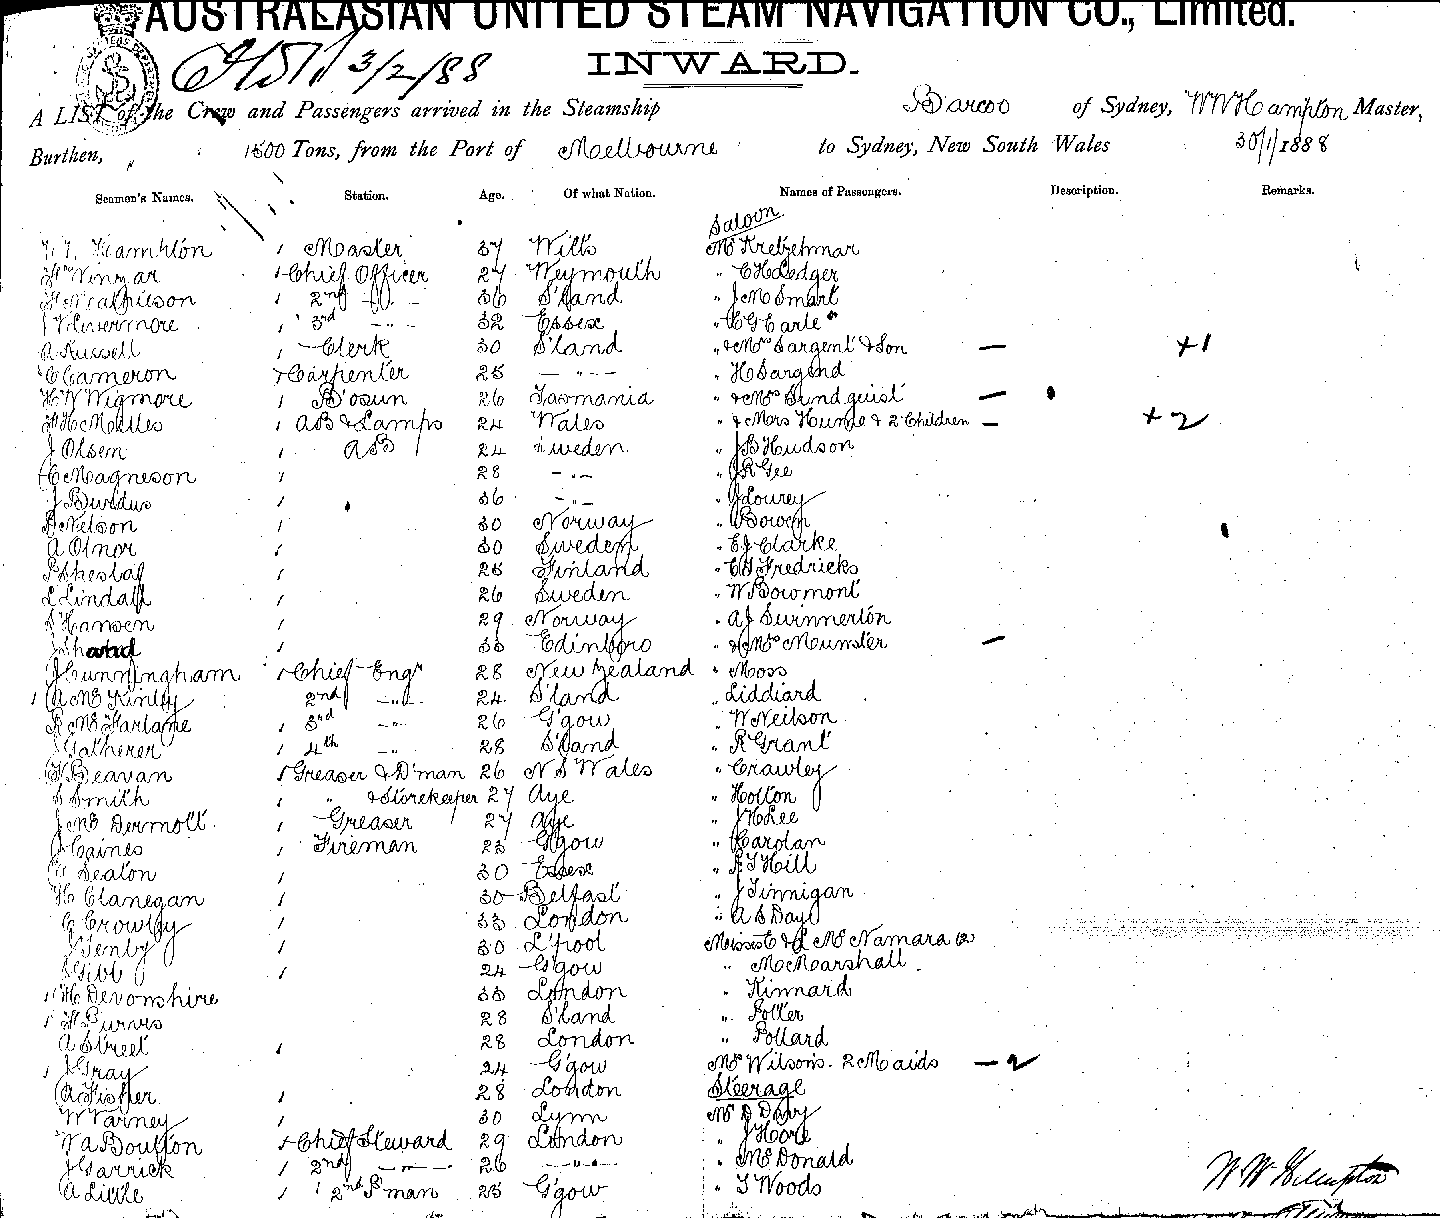 AUSTRALASIAN UNITED STEAM NAVIGATION CO., Limited.
3/2/88
INWARD.
A LIST of the Crew and Passengers arrived in the Steamship Barcoo of Sydney, WW Hampton Master,
Burthen, 1500 Tons, from the Port of Melbourne to Sydney, New South Wales 30/1/1888
Seamen's Names. Station. Age. Of what Nation. Names of Passengers. Description. Remarks.
Saloon
Hampton Master 37 Wilts Mr Kretzchmar
Winzar Chief Officer 27 Weymouth " C H Ledger
Mathieson 2nd -"- 36 S'land " J M Smart
Livermore 3rd -"- 32 Essex " C G Earle
A Russell Clerk 30 S'land " & Mrs Sargent & Son — +1
C Cameron Carpenter 25 — " — " H Sargend
H W Wigmore B'osun 26 Tasmania " & Mrs Sundquist —
AB & Lamps 24 Wales " & Mrs & 2 Children — +2
J Olsen AB 24 Sweden " J B Hudson
C Magneson 28 -"- " J R Gee
J Burdus 36 -"- " J Lourey
Nelson 30 Norway " Bowen
A Olnor 30 Sweden " E J Clarke
25 Finland " Fredricks
L Lindall 26 Sweden " W Bowmont
Hansen 29 Norway " A J Swinnerton
Edinboro " & Mrs Munster —
J Cunningham Chief Engr 28 New Zealand " Moss
A Mc Kinley 2nd -"- 24 S'land " Liddiard
R Mc Farlane 3rd -"- 26 G'gow " W Neilson
Gatherer 4th -"- 28 S'land " R Grant
Beavan Greaser & D'man 26 N S Wales " Crawley
S Smith " & Storekeeper 27 Aye " Holton
J Mc Dermott Greaser 27 Aye " J H Lee
J Caines Fireman 23 G'gow " Carolan
Seaton 30 Essex " Hill
H Clanegan 30 Belfast " J Finnigan
C Crowley 33 London " A S Day
J Tenby 30 L'pool Misses C & L Mc Namara (2)
Gibb 24 G'gow " McMarshall
H Devonshire 33 London " Kinnard
Purves 28 S'land " Potter
A Street 28 London " Pollard
J Gray 24 G'gow Mrs Wilson's. 2 Maids — 2
A Fisher 28 London Steerage
W Varney 30 Lynn Mr D Davy
W A Boulton Chief Steward 29 London " J Hore
J Garrick 2nd -"- 26 -"- " McDonald
A Little 2nd S'man 23 G'gow " T Woods
W W Hampton